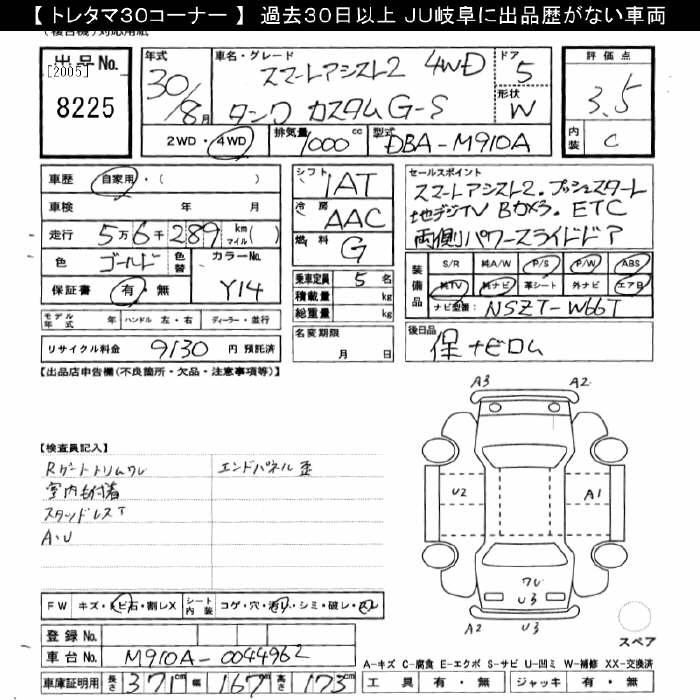 【 トレタマ30コーナー 】 過去30日以上 JU岐阜に出品歴がない車両
出品No.
[2005]
8225
年式
30/8月
車名・グレード
スマートアシスト2 4WD
タンク カスタムG-S
ドア
5
形状
W
評価点
3.5
内装
C
2WD・4WD
排気量
1000cc
型式
DBA-M910A
車歴 自家用・( )
車検 年 月
走行 5万6千289 km マイル( )
色 ゴールド 色替 カラーNo. Y14
保証書 有・無
シフト 1AT
冷房 AAC
燃料 G
乗車定員 5 名
積載量 kg
総重量 kg
セールスポイント
スマートアシスト2.プッシュスタート
地デジTV Bカメラ. ETC
両側パワースライドドア
装備品 S/R 純A/W P/S P/W ABS
純TV 純ナビ 革シート 外ナビ エアB
ナビ型番: NSZT-W66T
モデル年式 年 ハンドル 左・右 ディーラー・並行
リサイクル料金 9130 円 預託済
名変期限
月 日
後日品
保 ナビロム
【出品店申告欄(不良箇所・欠品・注意事項等)】
【検査員記入】
Rゲートトリムワレ エンドパネル歪
室内も付着
スタッドレスT
A・U
A3 A2
U2 A1
ワレ
U3
A2 U3
スペア
FW キズ・トビ石・割レX シート内装 コゲ・穴・汚レ・シミ・破レ・スレ
登録No.
車台No. M910A-0044962
車庫証明用 長さ 371cm 幅 167cm 高さ 173cm
A-キズ C-腐食 E-エクボ S-サビ U-凹ミ W-補修 XX-交換済
工具 有・無 ジャッキ 有・無